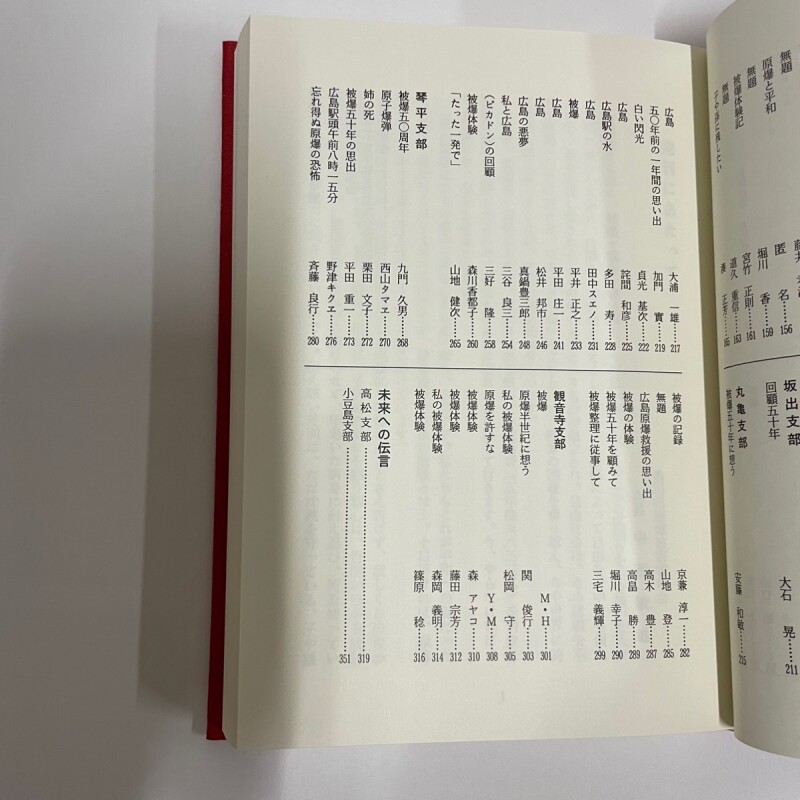 無題 匿 名……156
原爆と平和 堀川 香……159
被爆体験記 宮竹 正則……161
無題 道久 重信……163
坂出支部
回顧五十年 大石 晃……211
丸亀支部
被爆五十年に想う 安藤 和敏……215
広島 大浦 一雄……217
五〇年前の一年間の思い出 加門 實……219
白い閃光 貞光 基次……222
広島 詫間 和彦……225
広島駅の水 多田 寿……228
広島 田中スエノ……231
被爆 平井 正之……233
広島 平田 庄一……241
広島 松井 邦市……246
広島の悪夢 真鍋豊三郎……248
私と広島 三谷 良三……254
（ピカドン）の回顧 三好 隆……258
被爆体験 森川香都子……260
「たった一発で」 山地 健次……265
琴平支部
被爆五〇周年 九門 久男……268
原子爆弾 西山タマヱ……270
姉の死 栗田 文子……272
被爆五十年の思出 平田 重一……273
広島駅頭午前八時一五分 野津キクヱ……276
忘れ得ぬ原爆の恐怖 斉藤 良行……280
被爆の記録 京兼 淳一……282
無題 山地 登……285
広島原爆救援の思い出 高木 豊……287
被爆の体験 高畠 勝……289
被爆五十年を顧みて 堀川 幸子……290
被爆整理に従事して 三宅 義輝……299
観音寺支部
被爆 M・H……301
原爆半世紀に想う 関 俊行……303
私の被爆体験 松岡 守……305
原爆を許すな Y・M……308
被爆体験 森 アヤコ……310
被爆体験 藤田 宗芳……312
私の被爆体験 森岡 義明……314
被爆体験 篠原 稔……316
未来への伝言
高松支部……319
小豆島支部……351